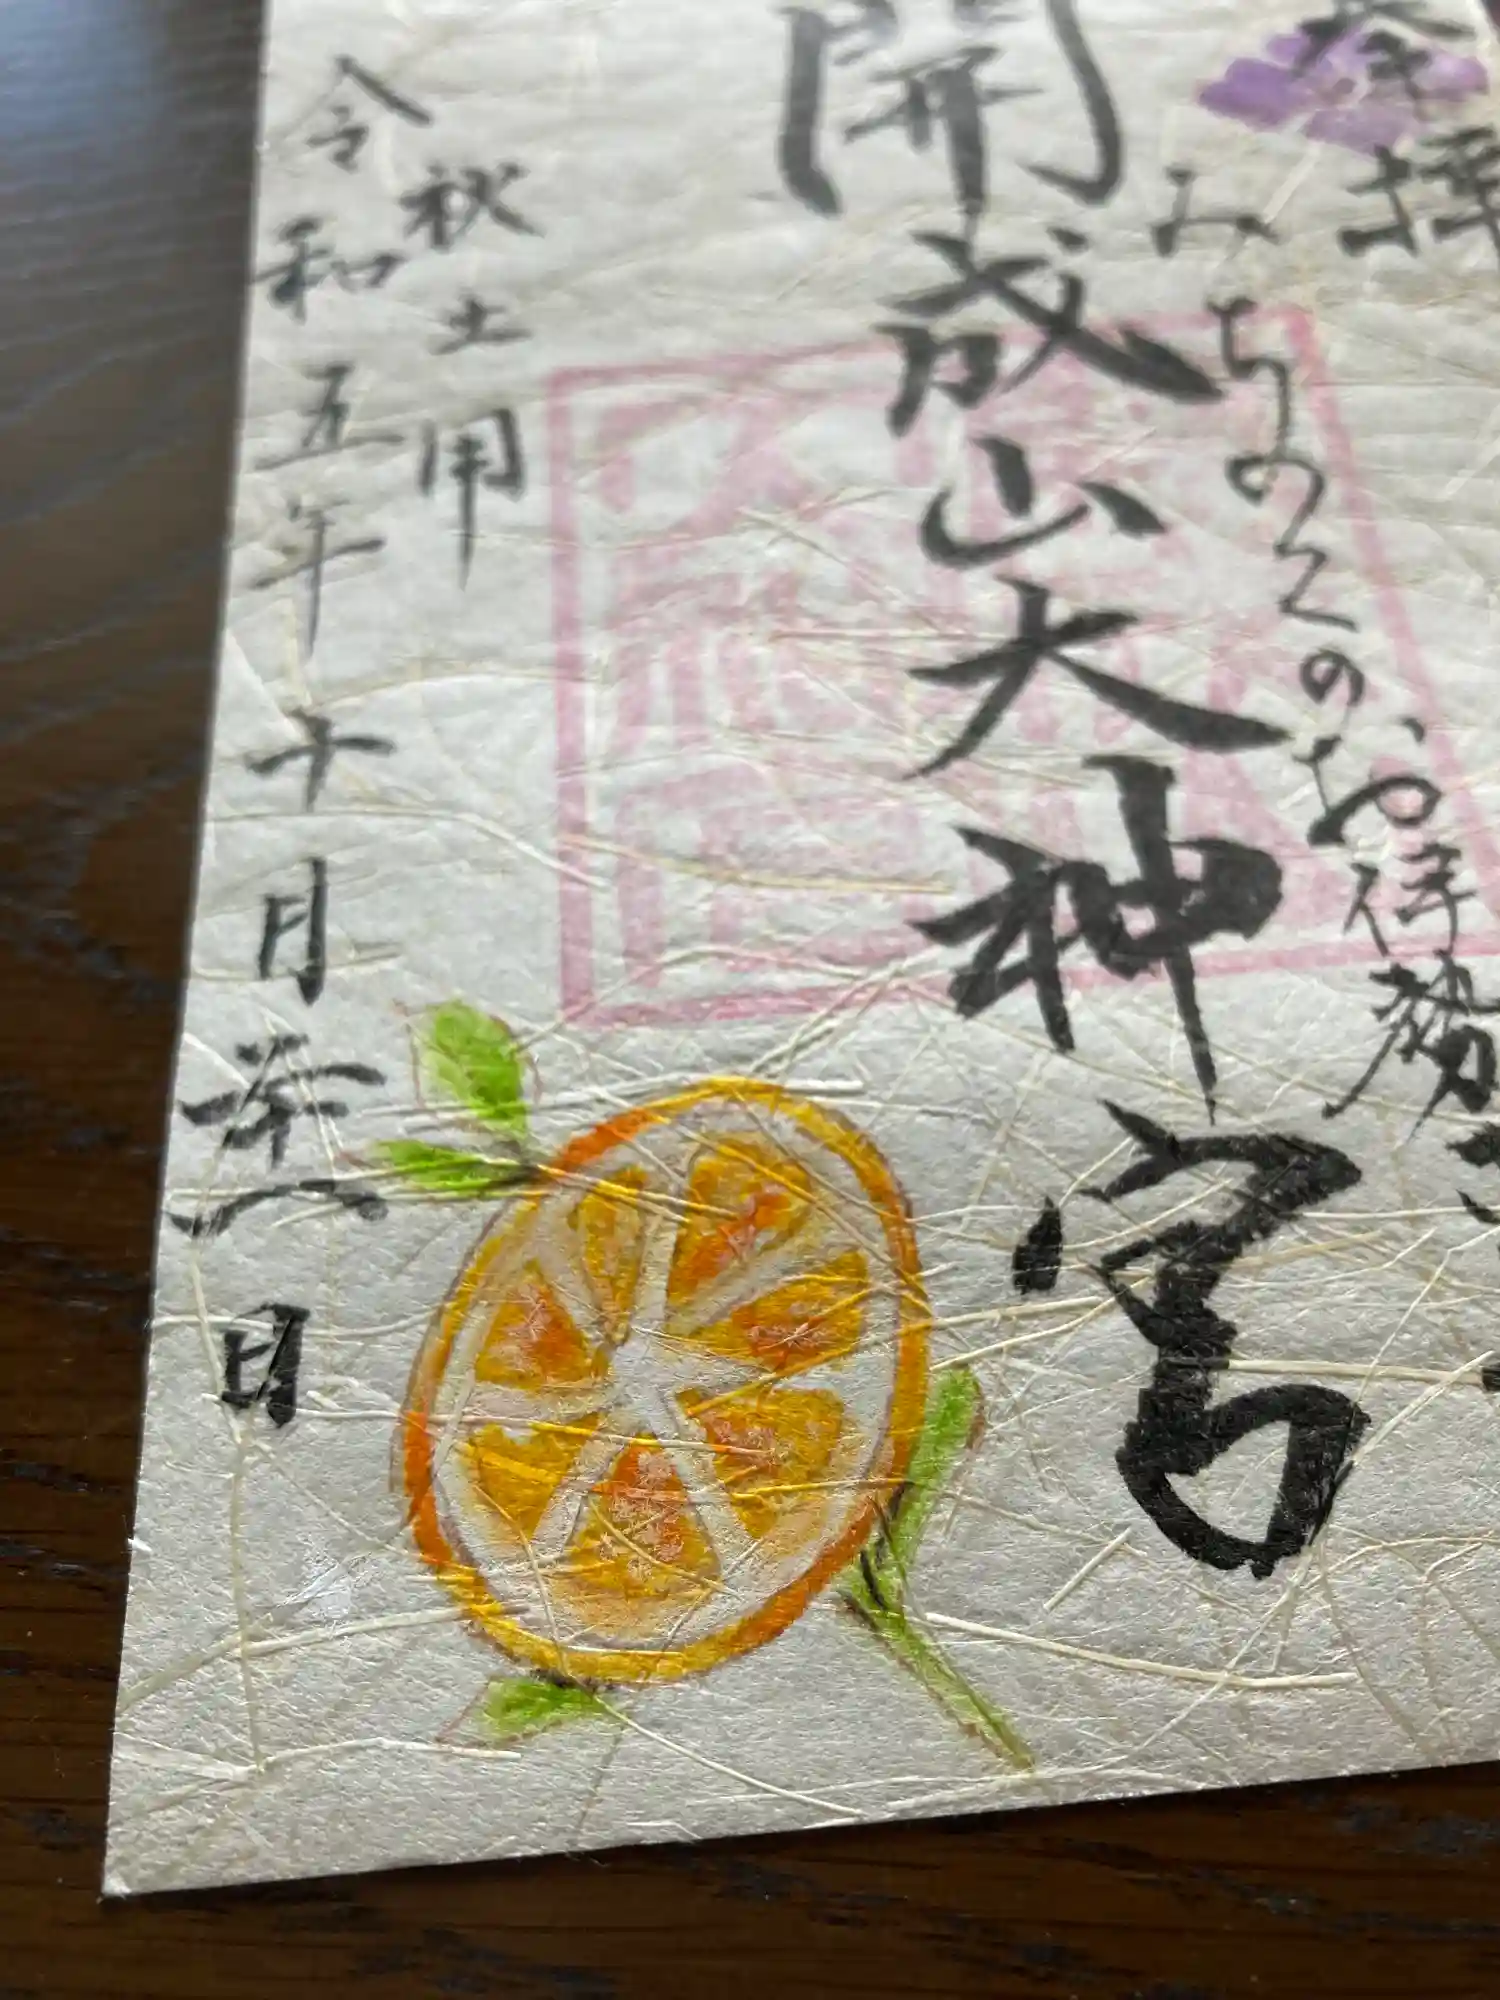 奉拝
みちのくのお伊勢さ
開成山大神宮
秋土用
令和五年十月廿八日